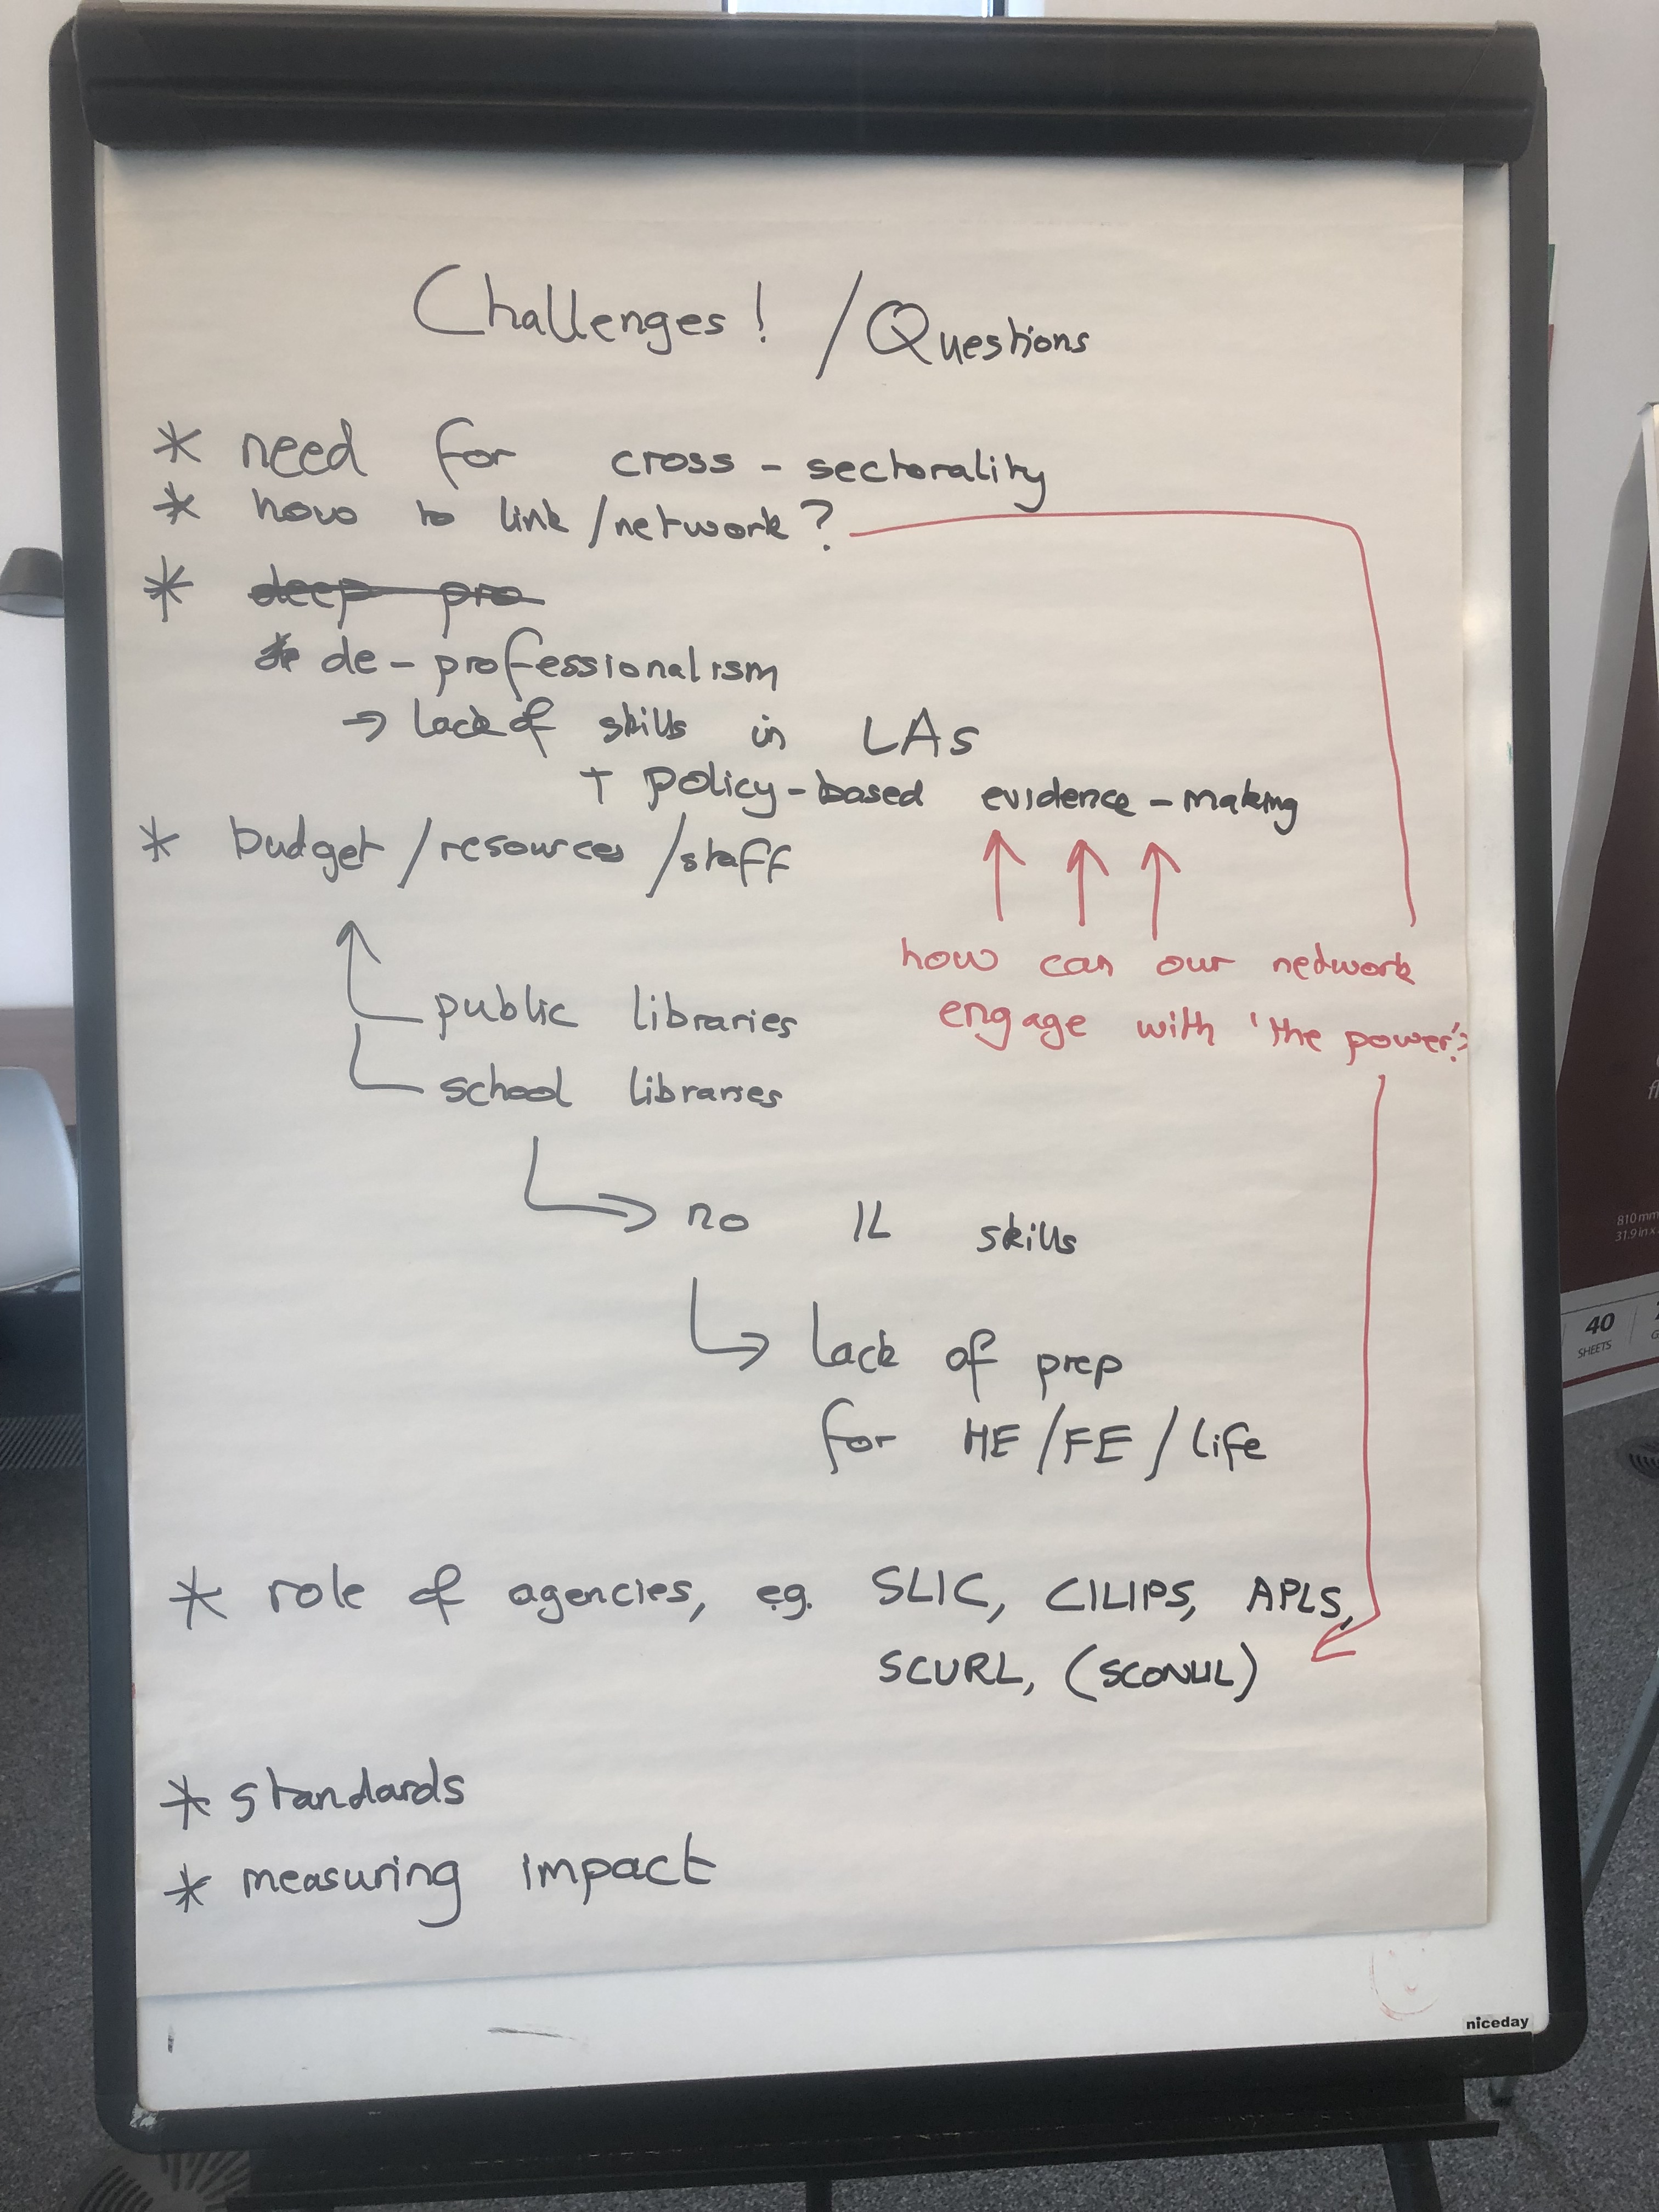 Challenges! / Questions
* need for cross-sectorality
* how to link/network?
* deep pro
* de-professionalism
→ lack of skills in LAs
+ policy-based evidence-making
* budget/resources/staff
how can our network
engage with 'the power'?
public libraries
school libraries
no IL skills
lack of prep
for HE/FE/life
* role of agencies, eg. SLIC, CILIPS, APLS,
SCURL, (SCONUL)
* standards
* measuring impact
niceday
810mm
31.9in x
40
SHEETS